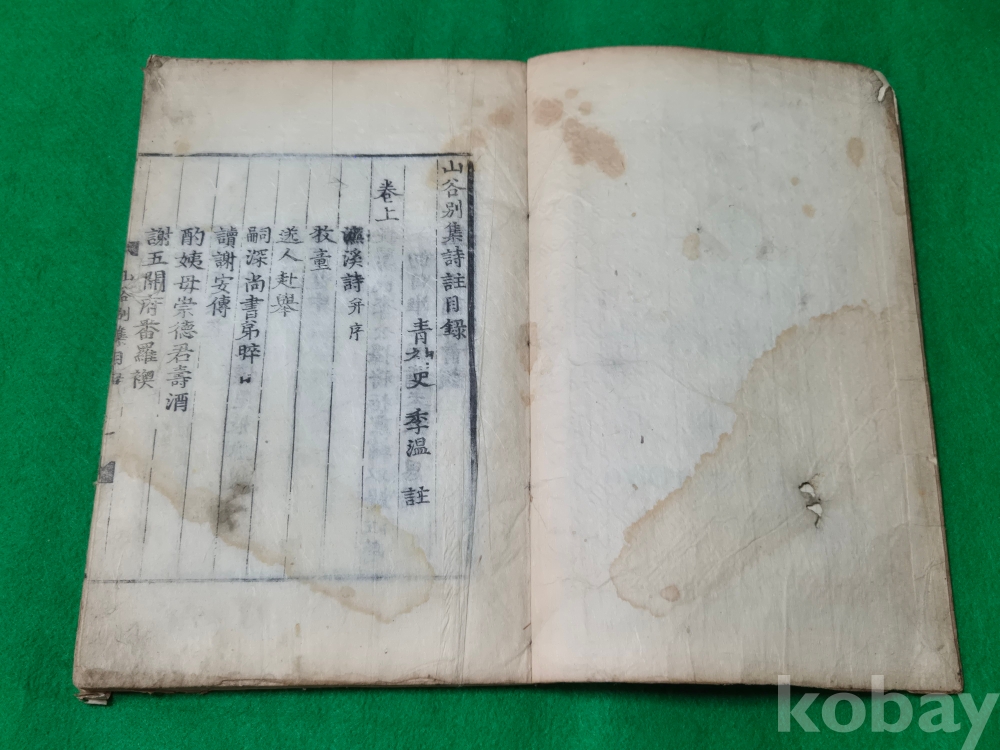 山谷別集詩註目錄
青神史季溫註
卷上
濂溪詩并序
敎童
送人赴擧
嗣深尚書弟晬日
讀謝安傳
酌姨母崇德君壽酒
謝五開府番羅襖
山谷別集目
kobay